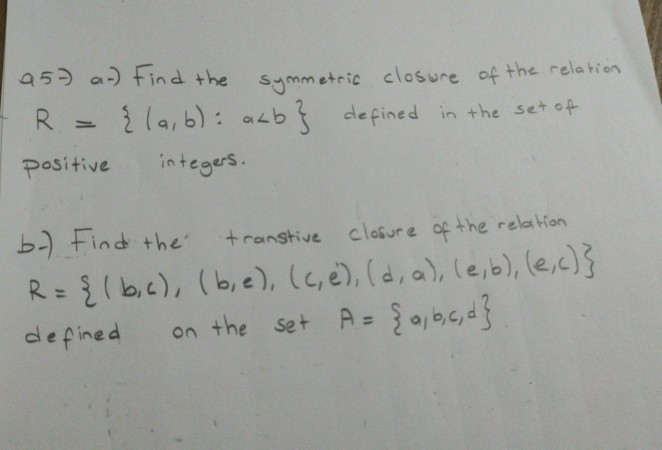 q5-) a-) Find the symmetric closure of the relation
R = {(a,b): a<b} defined in the set of
positive integers.
b-) Find the transtive closure of the relation
R = {(b,c), (b,e), (c,e), (d,a), (e,b), (e,c)}
defined on the set A = {a,b,c,d}